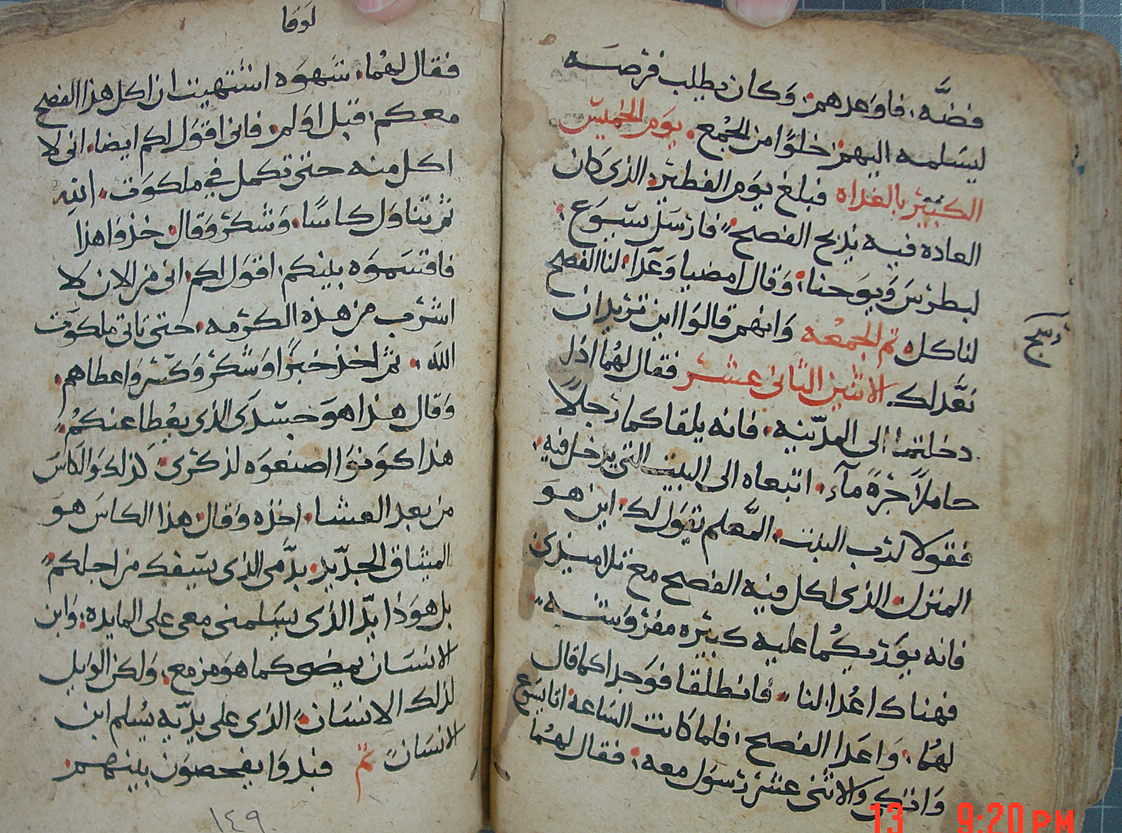 فضّه، فاوعدهم، وكان يطلب فرصه
ليسلمه اليهم خلوًا من الجمع، يوم الخميس
الكبير بالغداه فبلغ يوم الفطير الذى كان
العاده فيه يذبح الفصح، فارسل يسوع
لبطرس ويوحنا، وقال امضيا وعدا لنا الفصح
لناكل تم الجمعه وانهم قالوا اين تريد ان
نعد لك الاثنين الثانى عشر فقال لهما اذا
دخلتما الى المدينه، فانه يلقاكما رجلا
حاملًا جرة مآء، اتبعاه الى البيت التى يدخل فيه،
فقولا لرب البيت، المعلم يقول لك، اين هو
المنزل الذى اكل فيه الفصح مع تلاميذى
فانه يوريكما عليه كبيره مفروشه
فهناك اعدا لنا، فانطلقا فوجدا كما قال
لهما، واعدا الفصح، فلما كانت الساعه اتا يسوع
واتكى والاثنى عشر رسول معه، فقال لهما
لوقا
فقال لهما، شهوه اشتهيت ان اكل هذا الفصح
معكم، قبل اولم، فانى اقول لكم ايضا، انى لا
اكل منه حتى تكمل فى ملكوت الله
ثم تناول كاسًا، وشكر وقال، خذوا هذا
فاقتسموه بينكم، اقول لكم، انى من الان لا
اشرب من هذه الكرمه، حتى ياتى ملكوت
الله، ثم اخذ خبزًا وشكر وكسر واعطاهم،
وقال هذا هو جسدى الذى يعطا عنكم،
هذا كونوا اصنعوه لذكرى، كذلك والكاس
من بعد العشا، اخذه وقال، هذا الكاس هو
الميثاق الجديد، بدمى الذى يسفك من اجلكم
بل هوذا يد الذى يسلمنى معى على المايده، وابن
الانسان يمضى كما هو مزمع، ولكن الويل
لذلك الانسان، الذى على يديه يسلم ابن
الانسان تم فبدوا يفحصون بينهم
١٤٩
13 9:20 PM